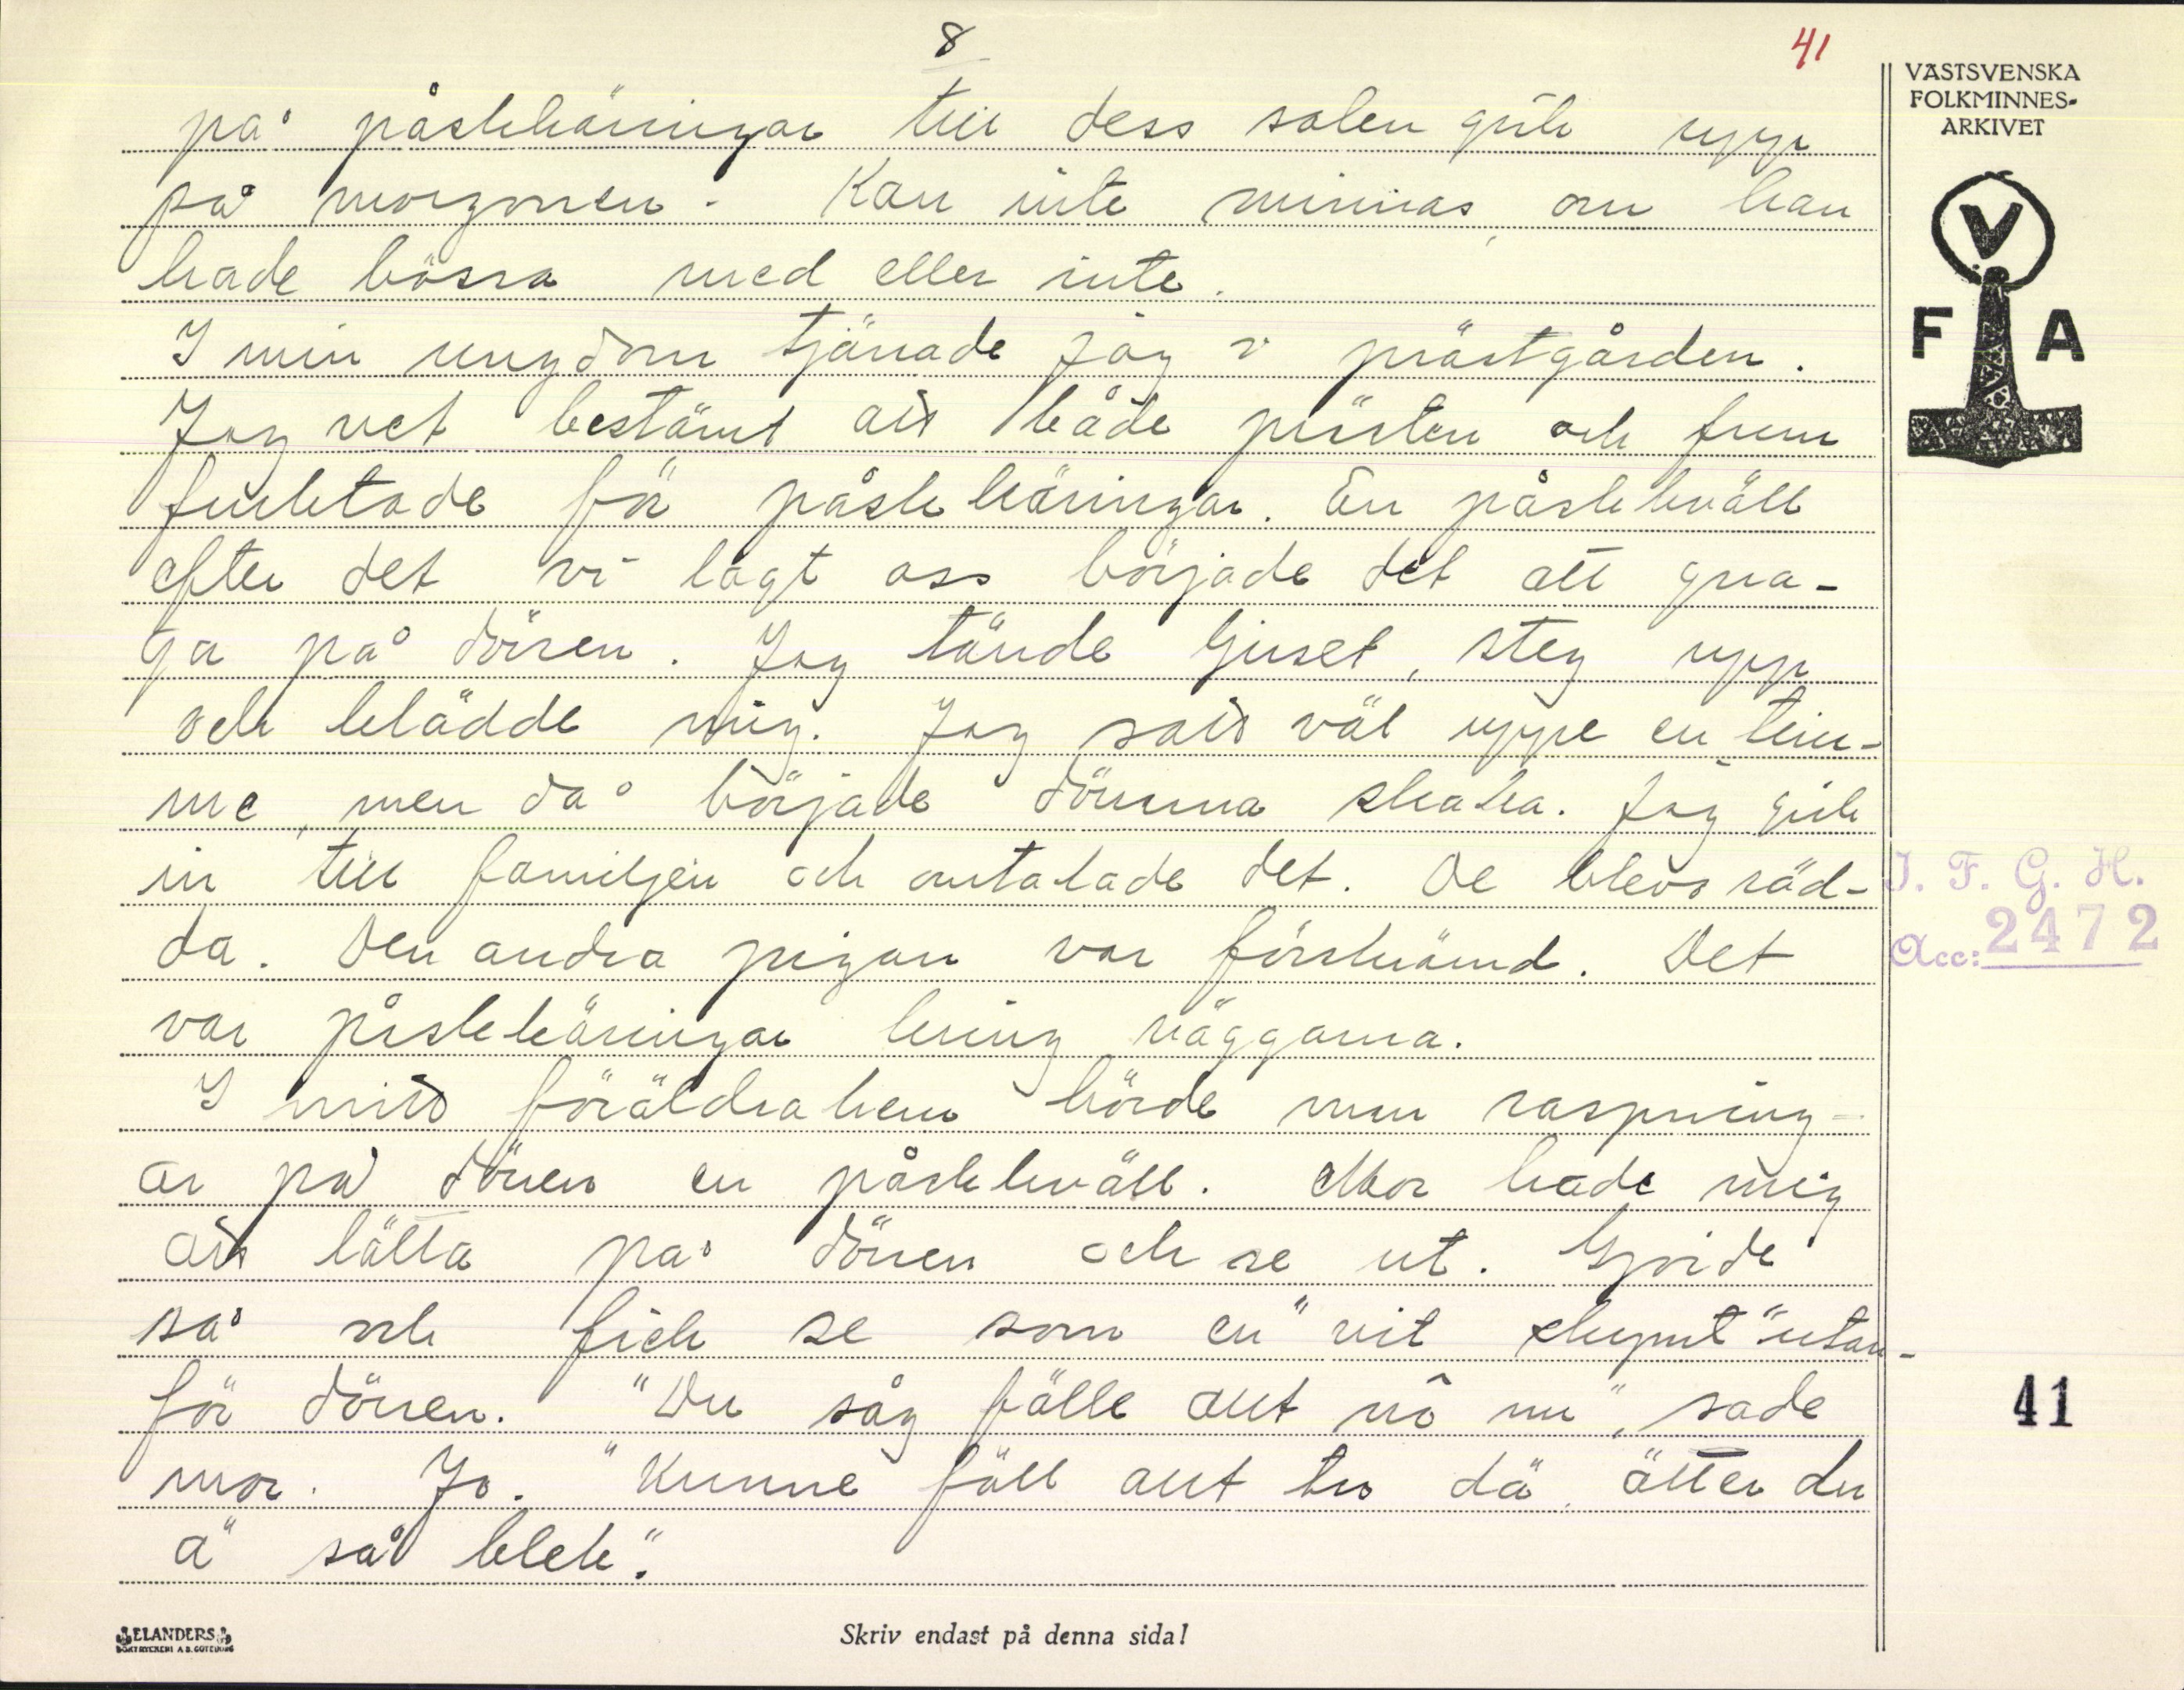 8
41
VÄSTSVENSKA
FOLKMINNES-
ARKIVET
V
F A
på påskkäringar till dess solen gick upp
på morgonen. Kan inte minnas om han
hade bössa med eller inte.
I min ungdom tjänade jag i prästgården.
Jag vet bestämt att både prästen och frun
fruktade för påskkäringar. En påskkväll
efter det vi lagt oss började det att gna-
ga på dörren. Jag tände ljuset, steg upp
och klädde mig. Jag satt väl uppe en tim-
me, men då började dörrarna skaka. Jag gick
in till familjen och omtalade det. De blevo räd-
da. Den andra pigan var förskrämd. Det
var påskkäringar kring väggarna.
I mitt föräldrahem hörde man raspning-
ar på dörren en påskkväll. Mor bade mig
att lätta på dörren och se ut. Gjorde
så och fick se som en "vit skymt" utan-
för dörren. "Du såg fälle allt nô nu", sade
mor. Jo. "Kunne fäll allt tro dä, ätter du
ä så blek".
I. F. G. H.
Acc: 2472
41
ELANDERS
BOKTRYCKERI A.B. GÖTEBORG
Skriv endast på denna sida!